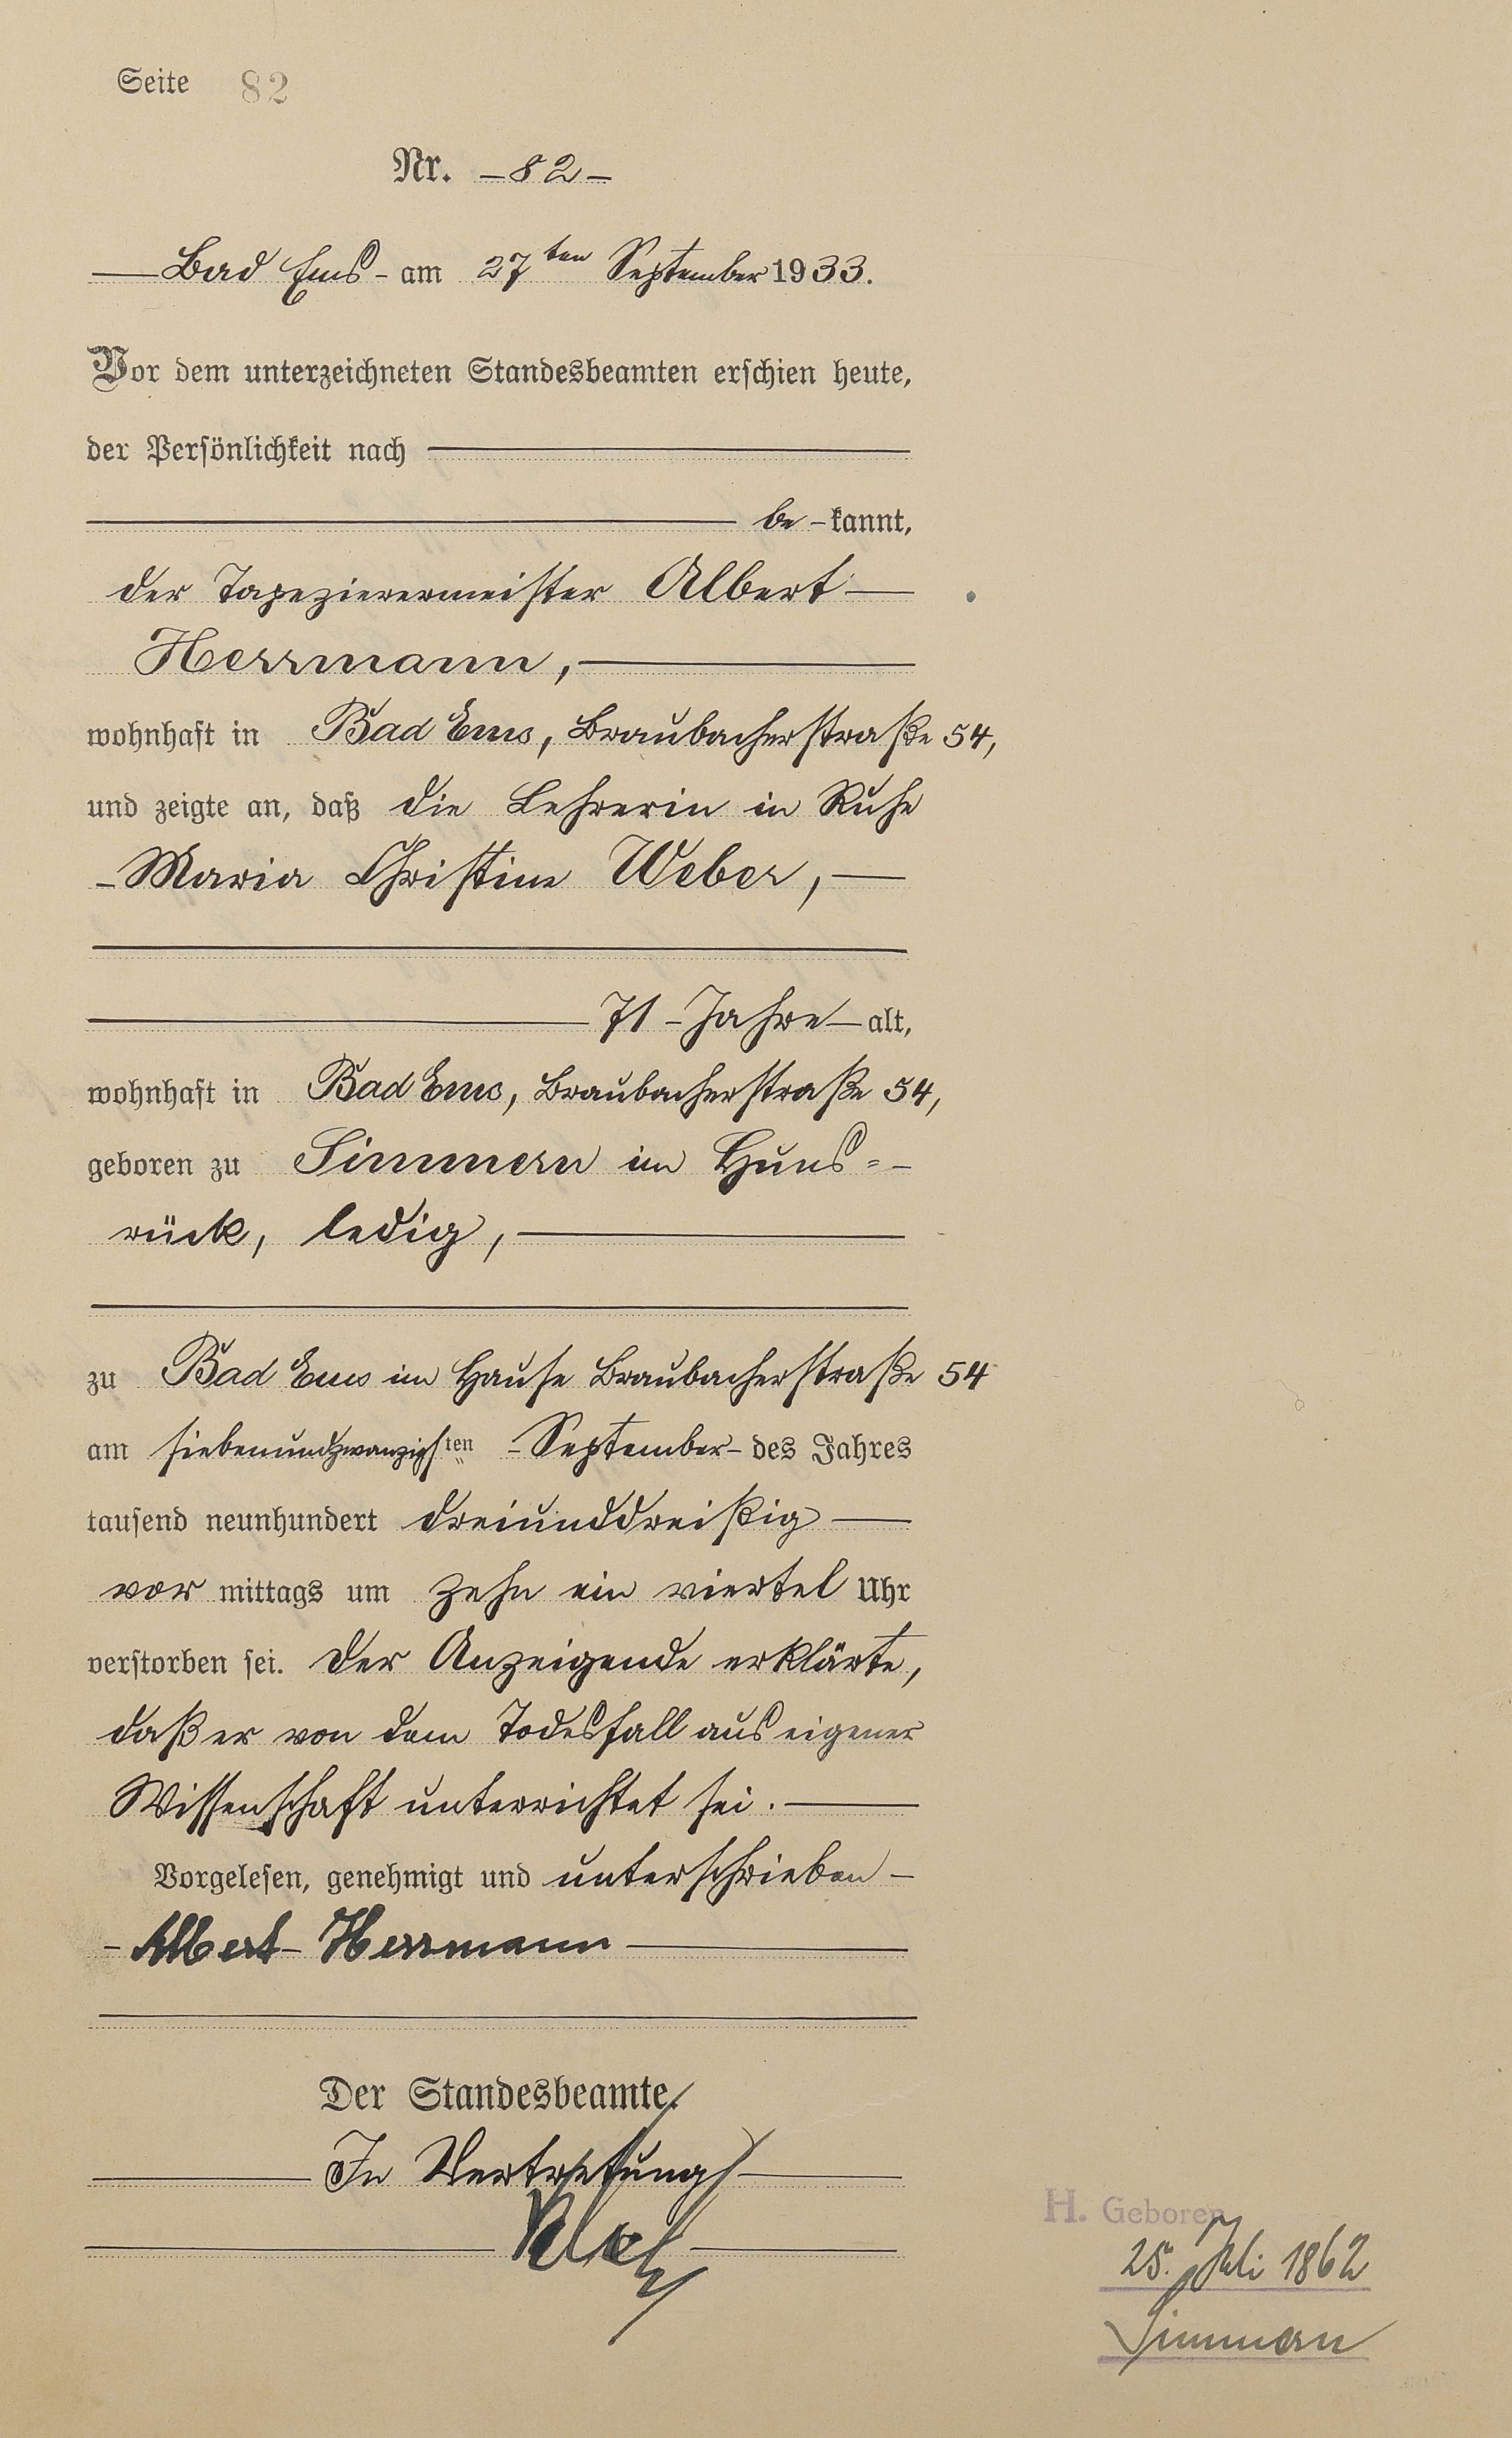 Seite 82
Nr. - 82 -
Bad Ems - am 27ten September 1933.
Vor dem unterzeichneten Standesbeamten erschien heute,
der Persönlichkeit nach
be - kannt,
der Tapezierermeister Albert
Herrmann,
wohnhaft in Bad Ems, Braubacherstraße 54,
und zeigte an, daß die Lehrerin in Ruhe
- Maria Christine Weber,
71 - Jahre - alt,
wohnhaft in Bad Ems, Braubacherstraße 54,
geboren zu Simmern im Huns=-
rück, ledig,
zu Bad Ems im Hause Braubacherstraße 54
am siebenundzwanzigsten - September - des Jahres
tausend neunhundert dreiunddreißig
vor mittags um zehn ein viertel Uhr
verstorben sei. Der Anzeigende erklärte,
daß er von dem Todesfall aus eigener
Wissenschaft unterrichtet sei.
Vorgelesen, genehmigt und unterschrieben -
- Albert - Herrmann
Der Standesbeamte.
In Vertretung
H. Geboren
25. Juli 1862
Simmern